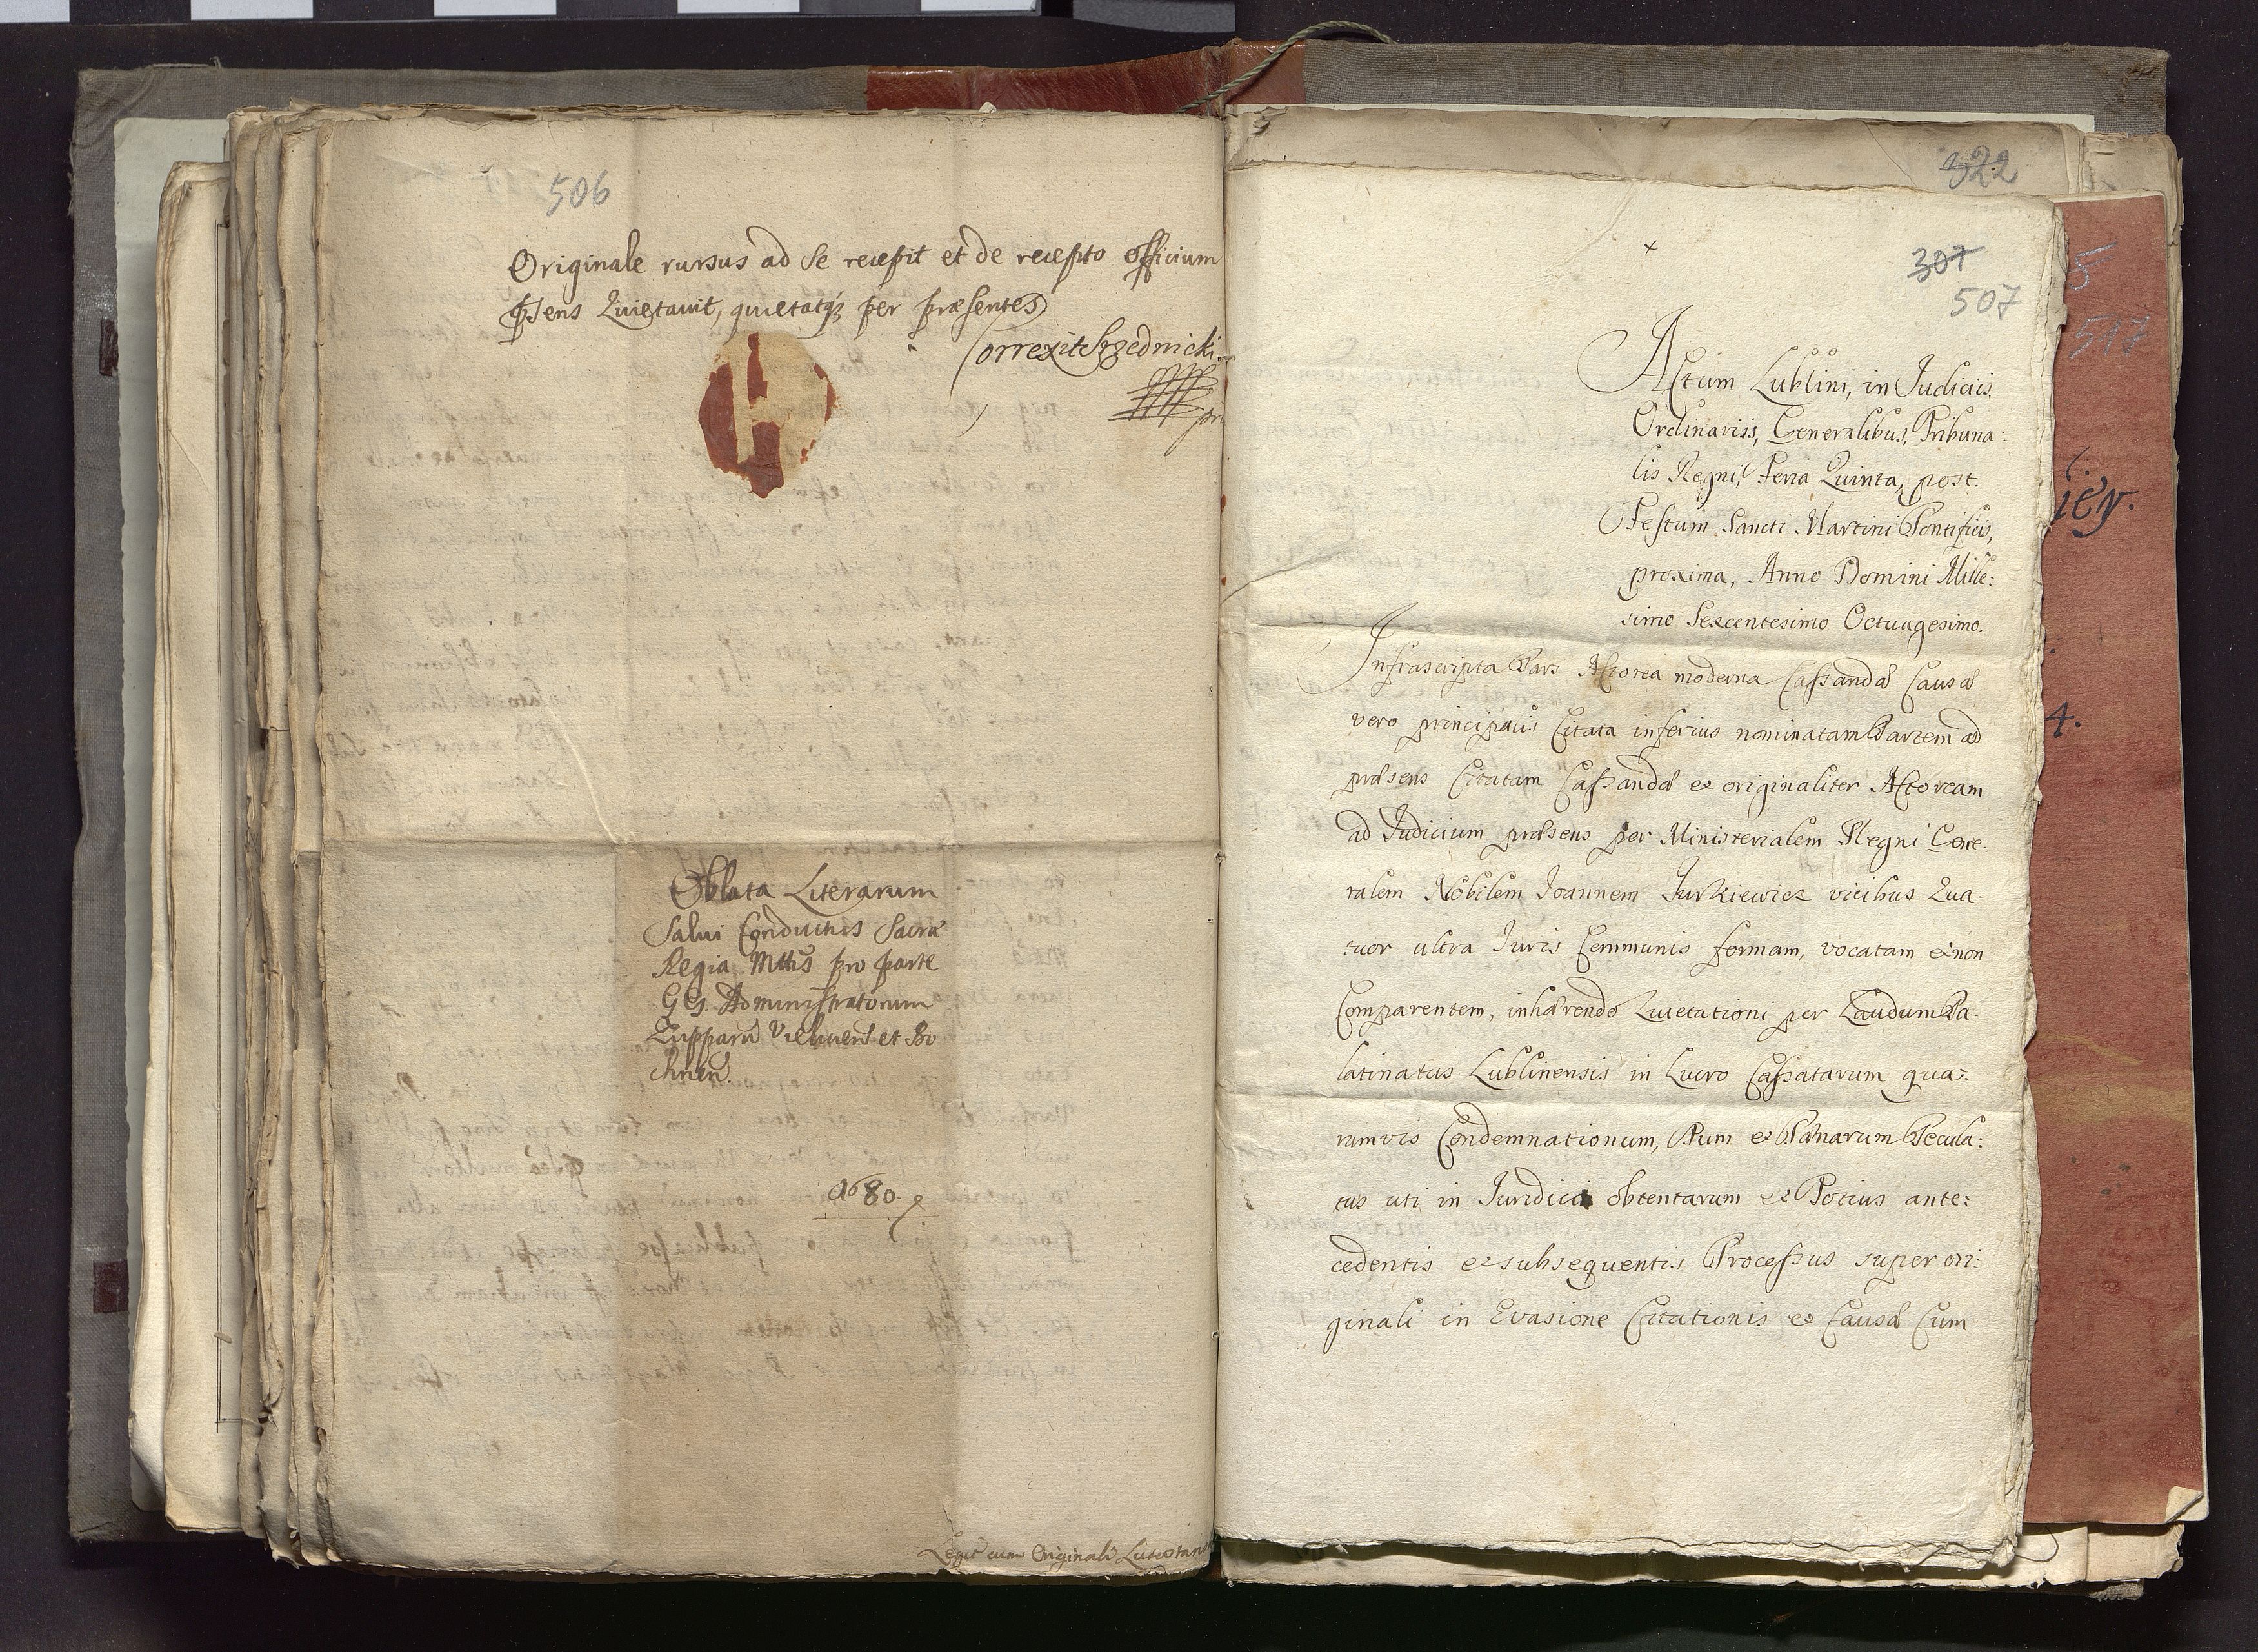 506
Originale rursus ad se recepit et de recepto officium
pñs ens Quietavit, quietatq3 per præsentes
Correxit Srzednicki
Oblata Literarum
Salui Conductus Sacræ
Regiæ Mttis pro parte
GG. Administratorum
Zupparū Vielicens et Bo
chnen.
1680.
Legit cum Originali
322
307
507
Actum Lublini, in Judiciis
Ordinariis, Generalibus, Tribuna:
lis Regni, Feria Quinta, post.
Festum Sancti Martini Pontificis,
proxima, Anno Domini Mille:
simo Sexcentesimo Octuagesimo.
Infrascripta Pars Actorea moderna Cassandæ Causæ
vero principalis Citata inferius nominatam Partem ad
præsens Citatam Cassandæ et originaliter Actoream
ad Judicium præsens per Ministerialem Regni Gene:
ralem Nobilem Joannem Jurkiewicz vicibus Qua:
tuor ultra Juris Communis formam, vocatam et non
Comparentem, inhærendo Quietationi per Laudum Pa:
latinatus Lublinensis in Lucro Cassatarum qua:
rumvis Condemnationum, Tum et Pænarum Pecula:
tus uti in Juridica obtentarum et Totius ante:
cedentis et subsequentis Processus super ori:
ginali in Evasione Citationis et Causæ Cum
5
517
iey.
4.